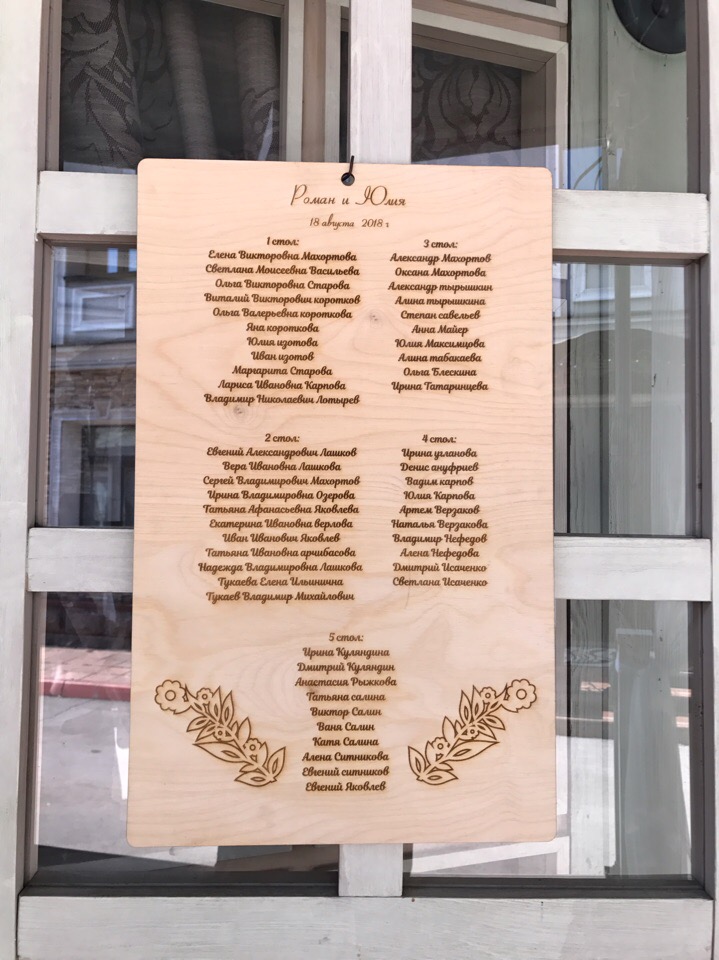 Роман и Юлия
18 августа 2018 г
1 стол:
Елена Викторовна Махортова
Светлана Моисеевна Васильева
Ольга Викторовна Старова
Виталий Викторович коротков
Ольга Валерьевна короткова
Яна короткова
Юлия изотова
Иван изотов
Маргарита Старова
Лариса Ивановна Карпова
Владимир Николаевич Лотырев
3 стол:
Александр Махортов
Оксана Махортова
Александр тырышкин
Алина тырышкина
Степан савельев
Анна Майер
Юлия Максимцова
Алина табакаева
Ольга Блескина
Ирина Татаринцева
2 стол:
Евгений Александрович Лашков
Вера Ивановна Лашкова
Сергей Владимирович Махортов
Ирина Владимировна Озерова
Татьяна Афанасьевна Яковлева
Екатерина Ивановна верлова
Иван Иванович Яковлев
Татьяна Ивановна арчибасова
Надежда Владимировна Лашкова
Тукаева Елена Ильинична
Тукаев Владимир Михайлович
4 стол:
Ирина угланова
Денис ануфриев
Вадим карпов
Юлия Карпова
Артем Верзаков
Наталья Верзакова
Владимир Нефедов
Алена Нефедова
Дмитрий Исаченко
Светлана Исаченко
5 стол:
Ирина Куляндина
Дмитрий Куляндин
Анастасия Рыжкова
Татьяна салина
Виктор Салин
Ваня Салин
Катя Салина
Алена Ситникова
Евгений ситников
Евгений Яковлев